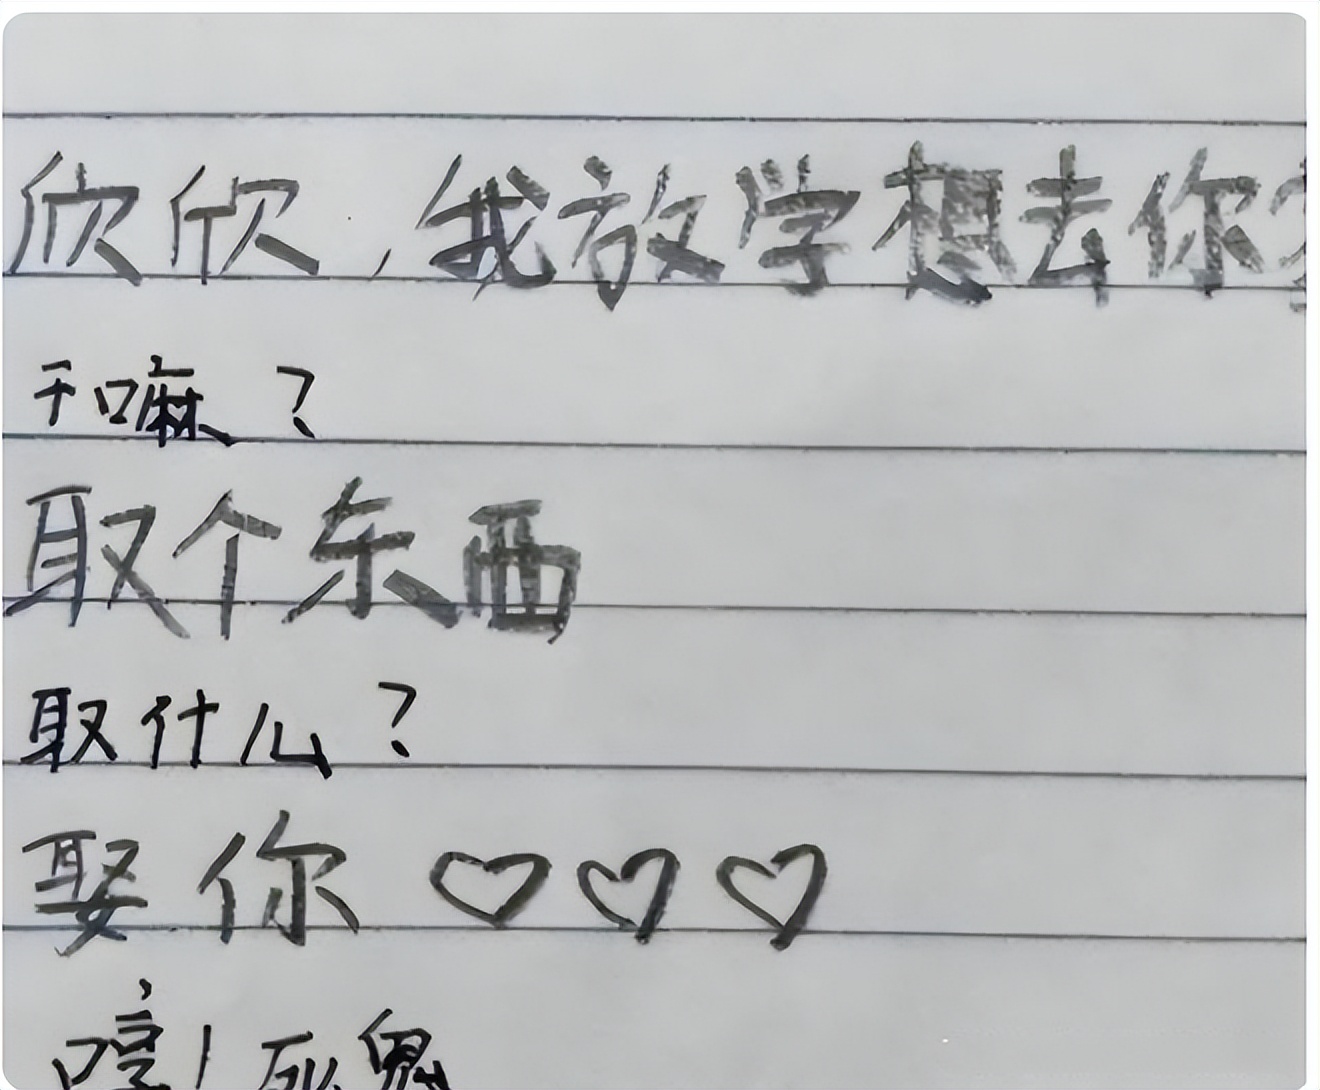 欣欣,我放学想去你
干嘛?
取个东西
取什么?
娶你♡♡♡
哼!死鬼